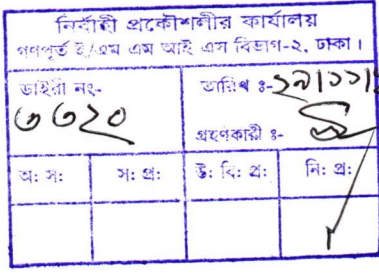 নির্বাহী প্রকৌশলীর কার্যালয়
গণপূর্ত ই/এম এম আই এস বিভাগ-২, ঢাকা।
ডাইরী নং-
তারিখ ঃ-২৯/১১/
৩৩২০
গ্রহণকারী ঃ-
অ: স: স: প্র: উ: বি: প্র: নি: প্র: